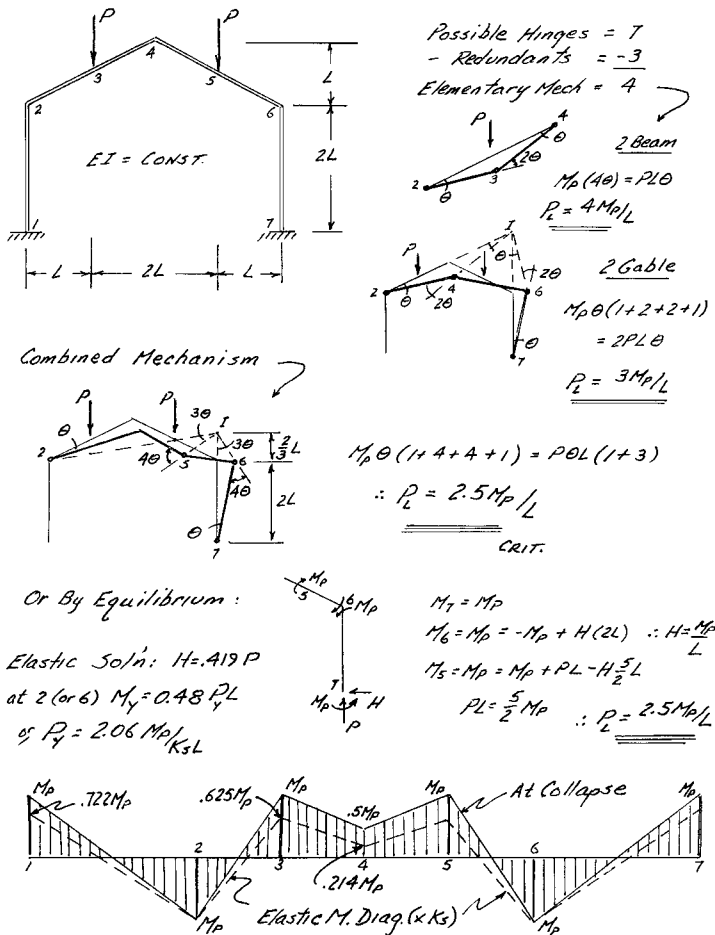 P
P
4
3
5
2
6
L
EI = CONST.
2L
1
7
L
2L
L
Possible Hinges = 7
- Redundants = -3
Elementary Mech = 4
P
4
θ
2θ
2
θ
3
2 Beam
Mp(4θ) = PLθ
P_L = 4Mp/L
I
P
θ
2θ
2
θ
2θ
4
6
θ
7
2 Gable
Mpθ(1+2+2+1)
= 2PLθ
P_L = 3Mp/L
Combined Mechanism
P
P
3θ
I
θ
3θ
2/3 L
2
4θ
5
6
4θ
2L
θ
7
Mpθ(1+4+4+1) = PθL(1+3)
∴ P_L = 2.5Mp/L
CRIT.
Or By Equilibrium:
Elastic Sol'n: H=.419P
at 2 (or 6) My = 0.48 PyL
or Py = 2.06 Mp/KsL
Mp
5
6
Mp
7
Mp
H
P
M7 = Mp
M6 = Mp = -Mp + H(2L) ∴ H = Mp/L
M5 = Mp = Mp + PL - H 5/2 L
PL = 5/2 Mp ∴ P_L = 2.5Mp/L
Mp
.722Mp
.625Mp
Mp
.5Mp
Mp
At Collapse
Mp
1
2
3
4
5
6
7
.214Mp
Mp
Elastic M. Diag. (x Ks)
Mp